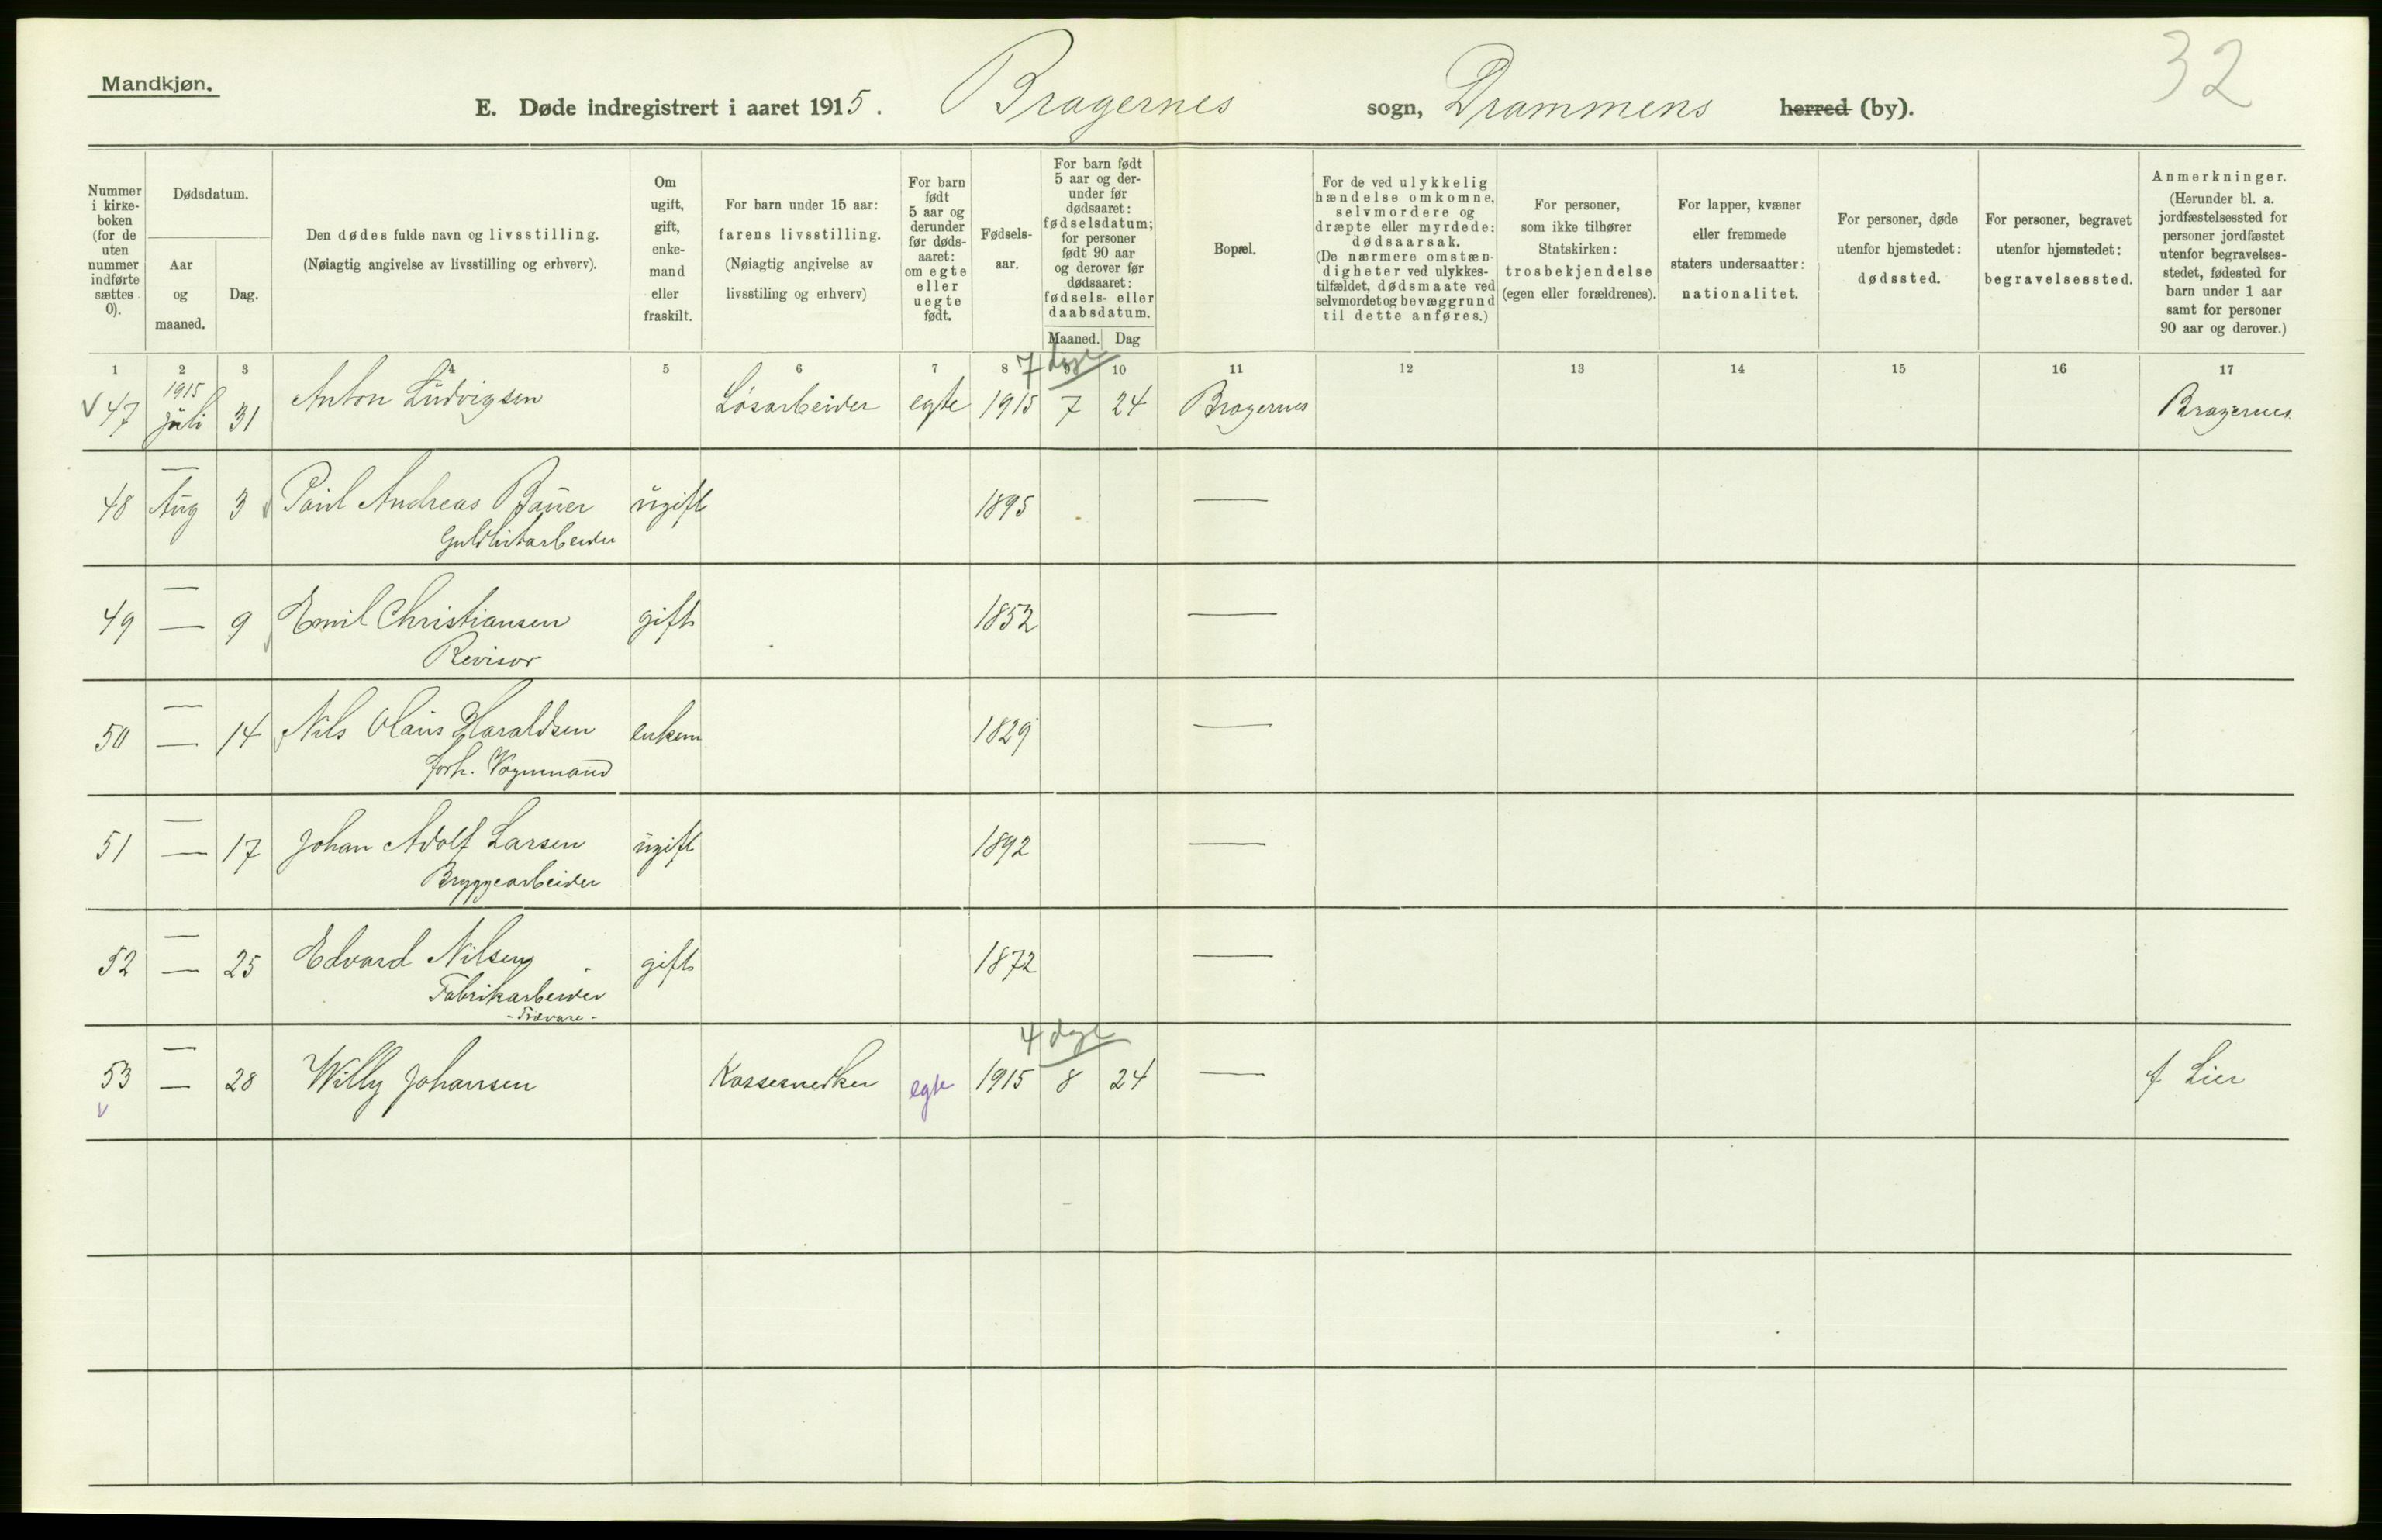 32
Mandkjøn.
E. Døde indregistrert i aaret 1915. Bragernes sogn, Drammens herred (by).
Nummer i kirke-boken (for de uten nummer indførte sættes 0).
Dødsdatum.
Aar og maaned.
Dag.
Den dødes fulde navn og livsstilling.
(Nøiagtig angivelse av livsstilling og erhverv).
Om ugift, gift, enke-mand eller fraskilt.
For barn under 15 aar:
farens livsstilling.
(Nøiagtig angivelse av
livsstiling og erhverv)
For barn født 5 aar og derunder før døds-aaret: om egte eller uegte født.
Fødsels-aar.
For barn født 5 aar og der-under før dødsaaret: fødselsdatum; for personer født 90 aar og derover før dødsaaret: fødsels- eller daabsdatum.
Maaned. Dag
Bopæl.
For de ved ulykkelig hændelse omkomne, selvmordere og dræpte eller myrdede: dødsaarsak.
(De nærmere omstæn-digheter ved ulykkes-tilfældet, dødsmaate ved selvmordet og bevæggrund til dette anføres.)
For personer, som ikke tilhører Statskirken: trosbekjendelse (egen eller forældrenes).
For lapper, kvæner eller fremmede staters undersaatter: nationalitet.
For personer, døde utenfor hjemstedet: dødssted.
For personer, begravet utenfor hjemstedet: begravelsessted.
Anmerkninger.
(Herunder bl. a. jordfæstelsessted for personer jordfæstet utenfor begravelses-stedet, fødested for barn under 1 aar samt for personer 90 aar og derover.)
1 2 3 4 5 6 7 8 9 10 11 12 13 14 15 16 17
7 dage
V 47 1915 juli 31 Anton Ludvigsen Løsarbeider egte 1915 7 24 Bragernes Bragernes
48 — Aug 3 Paul Andreas Bauer ugift 1895 —
Guldlistarbeider
49 — — 9 Emil Christiansen gift 1852 —
Revisor
50 — — 14 Nils Olaus Haraldsen enkem 1829 —
forh. Vognmand
51 — — 17 Johan Adolf Larsen ugift 1892 —
Bryggearbeider
52 — — 25 Edvard Nilsen gift 1872 —
Fabrikarbeider
- Trævare -
4 dage
53 — — 28 Willy Johansen Kassesnedker egte 1915 8 24 — f Lier
V